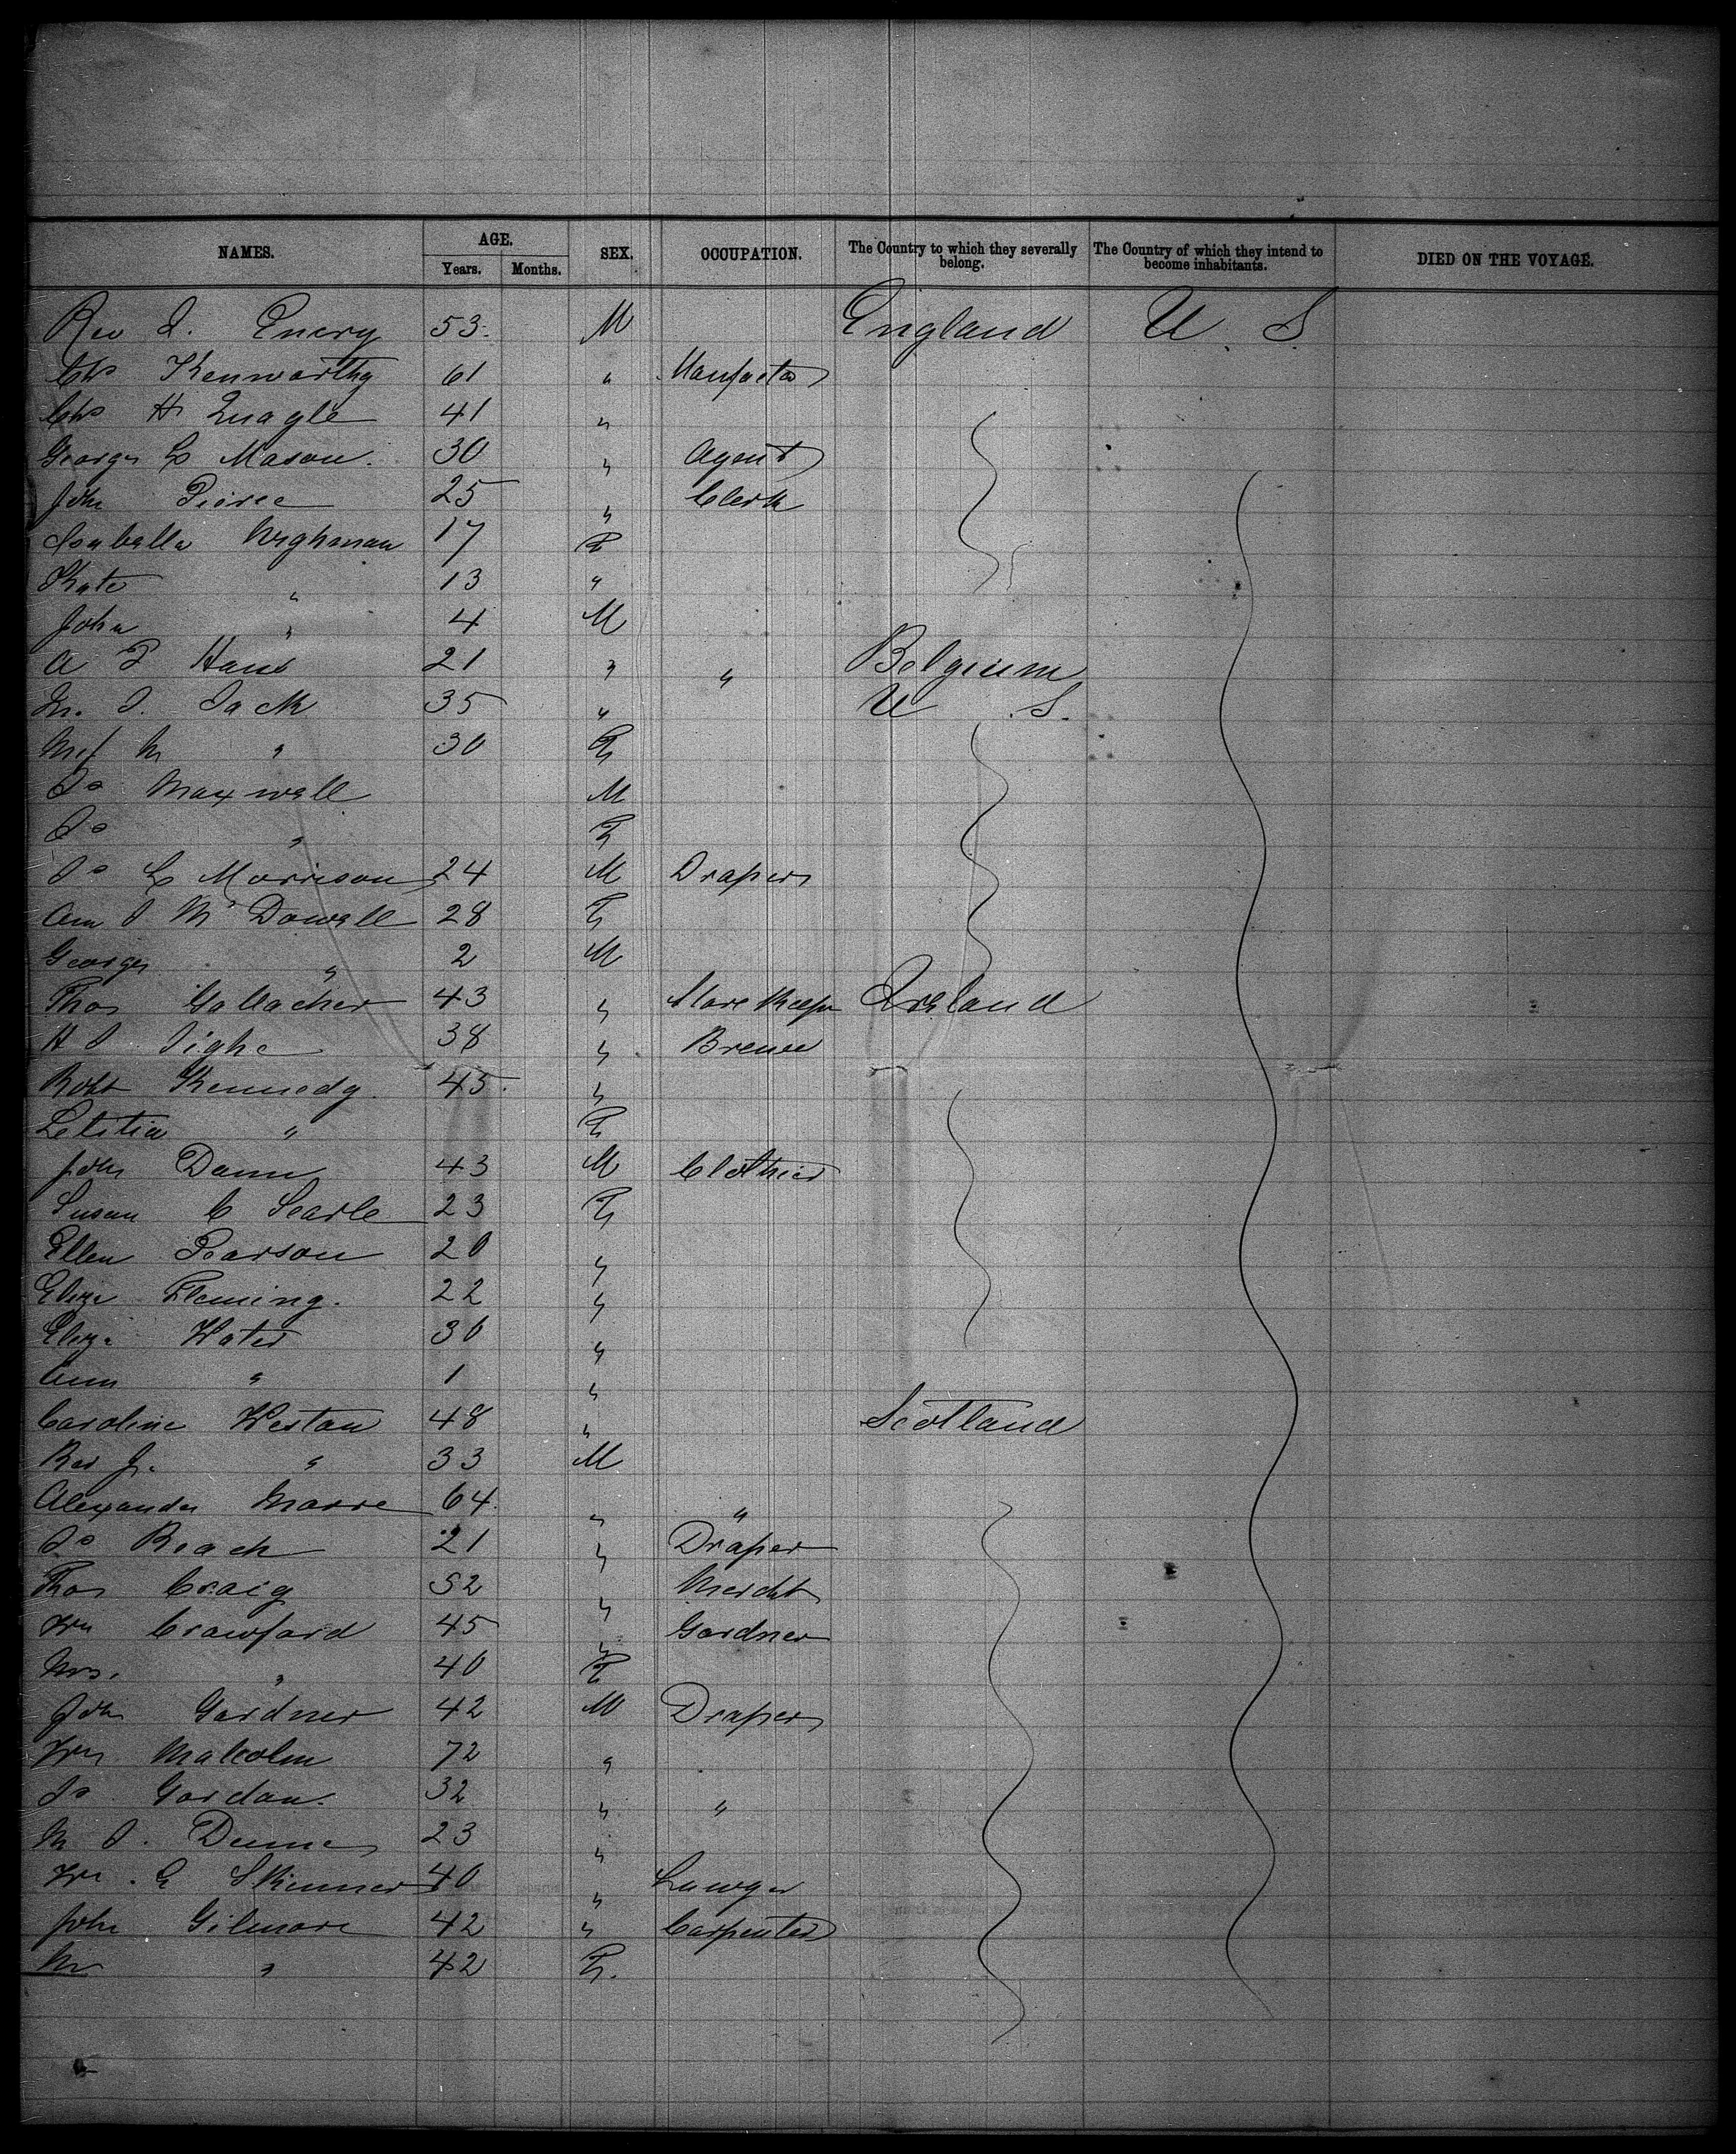 NAMES. AGE. SEX. OCCUPATION. The Country to which they severally belong. The Country of which they intend to become inhabitants. DIED ON THE VOYAGE.
Years. Months.
Rev J. Emery 53 M England U S
Chs Kenworthy 61 "
Chs H Quagle 41 "
George C Mason. 30 " Agent
John Pierce 25 " Clerk
Isabella 17 F
Kate " 13 "
John " 4 M
A F Hans 21 " " Belgium
M. J. Jack 35 " U S.
M " 30 F
Js Maxwell M
Js " F
Js C Morrison 24 M Draper
Ann J McDowell 28 F
George " 2 M
Thos Gallacher 43 " Ireland
H J Tighe 38 "
Robt Kennedy 45 "
Letitia " F
John Dann 43 M Clothier
Susan C Searle 23 F
Ellen Pearson 20 "
Eliza Fleming. 22 "
Eliza Water 30 "
Ann " 1 "
Caroline Weston 48 " Scotland
Rev J. " 33 M
Alexander 64 " "
Js Roach 21 " Draper
Thos Craig 52 " Mercht
Wm Crawford 45 " Gardner
Mrs. " 40 F
John Gardner 42 M Draper
Wm Malcolm 72 "
Js Gordon. 32 " "
M J. 23 "
Wm G Skinner 40 " Lawyer
John Gilmore 42 " Carpenter
" 42 F.